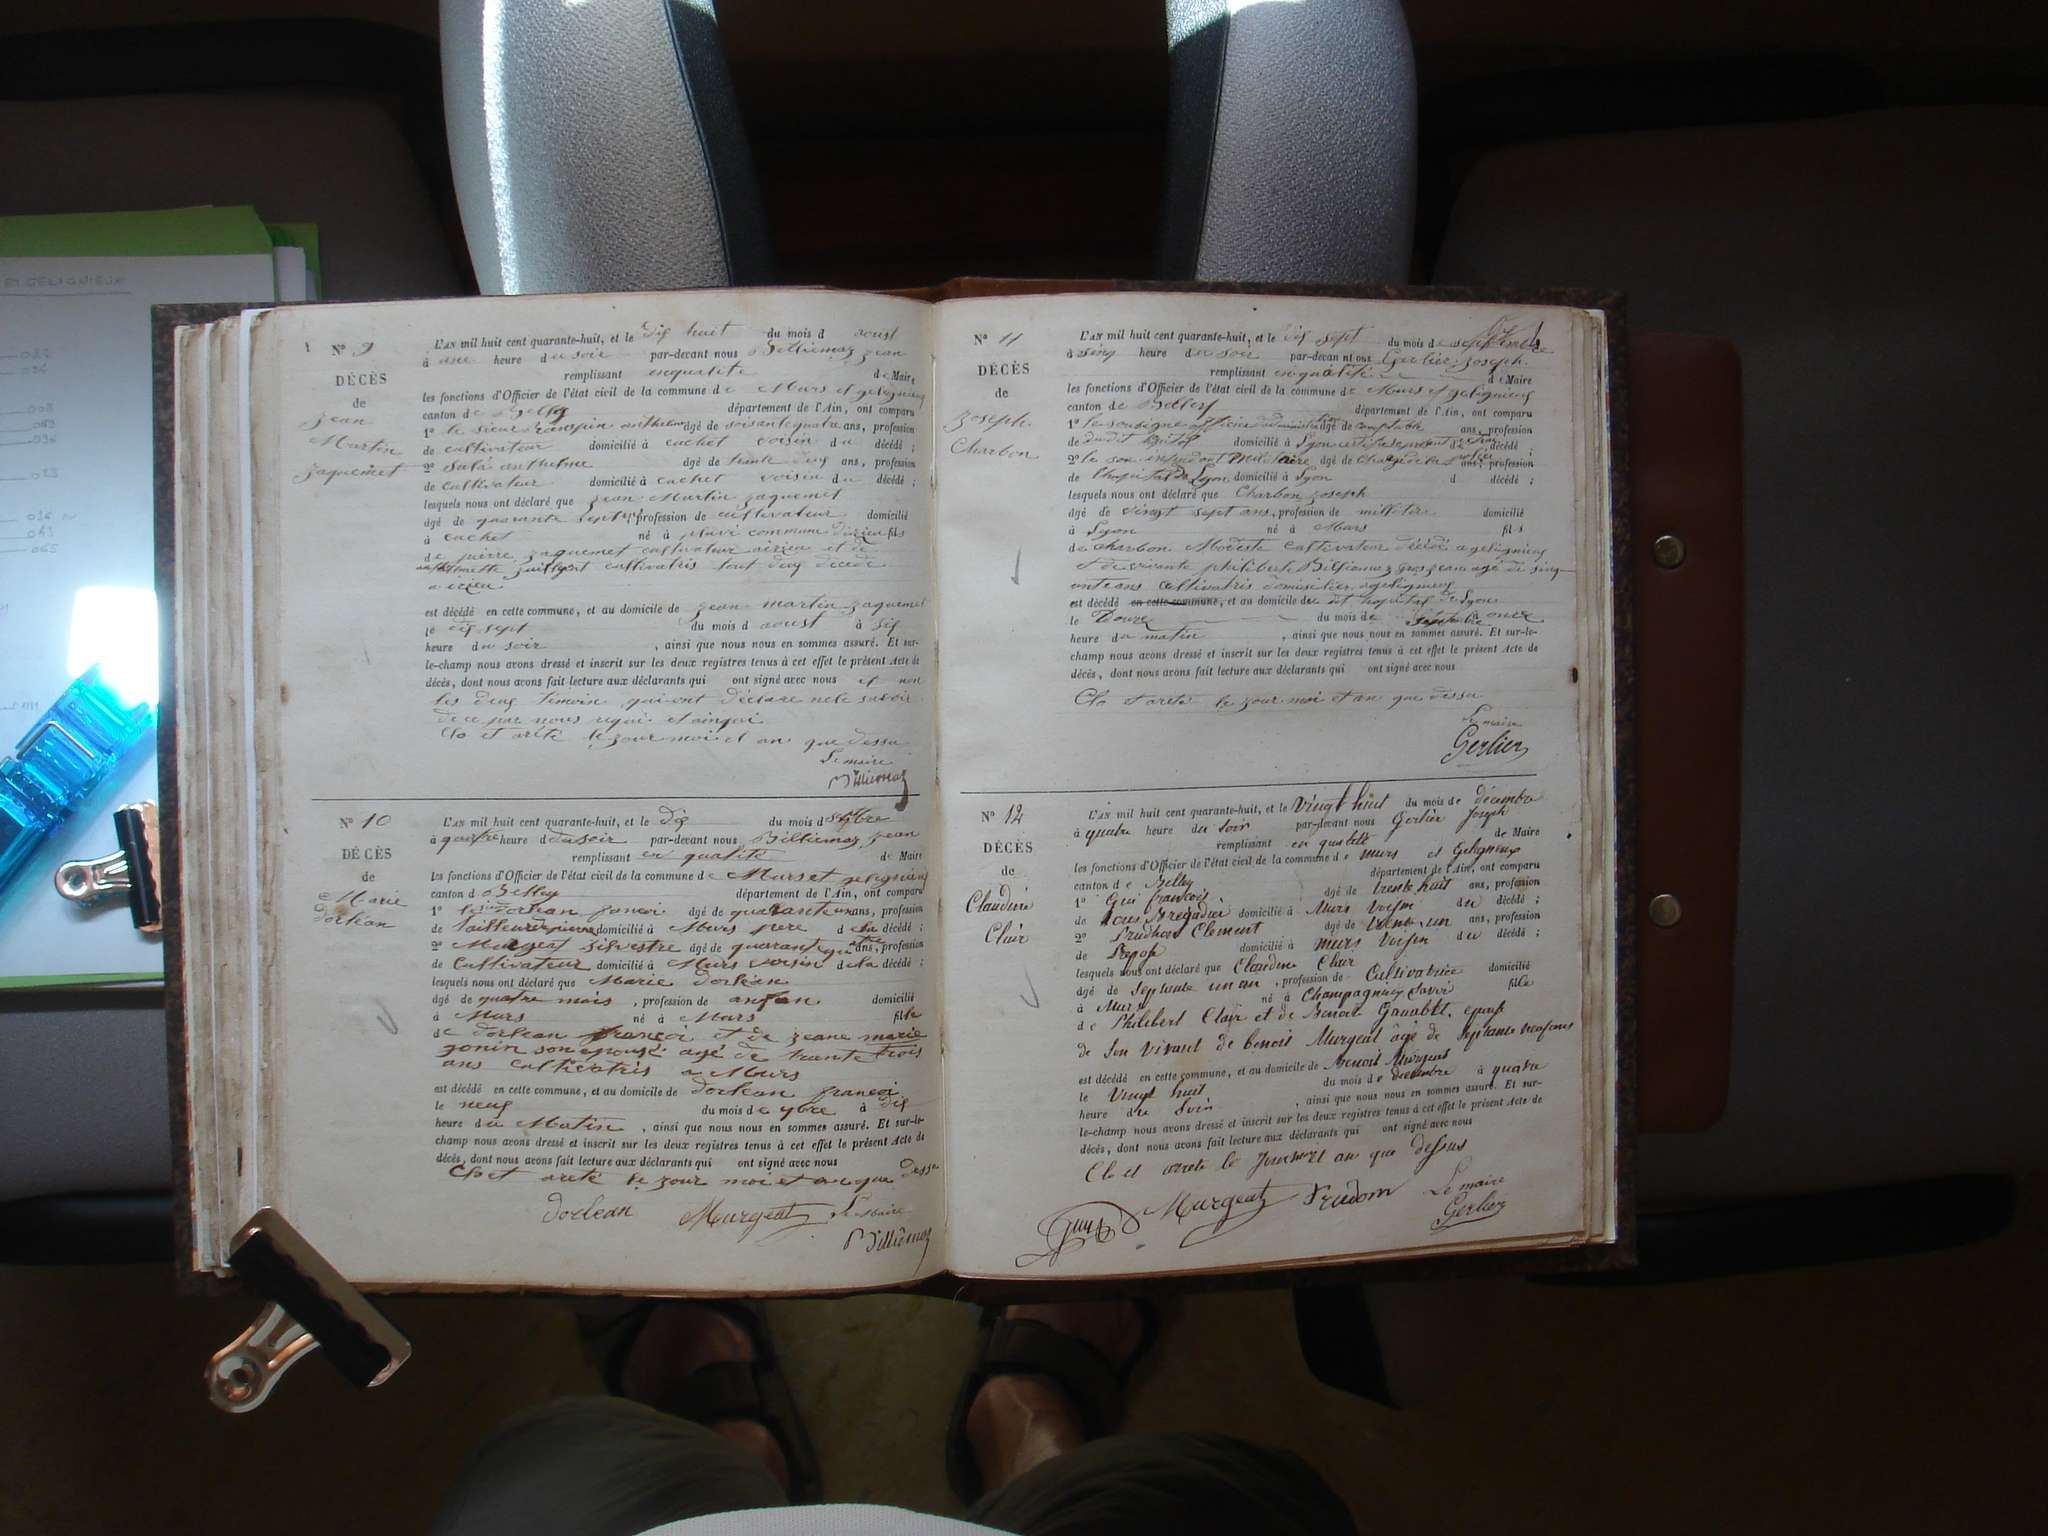 ET GELIGNIEUX
N° 9
DÉCÈS
de
jean
Martin
jaquemet
L'AN mil huit cent quarante-huit, et le dix huit du mois d aoust
à une heure du soir par-devant nous Billiemaz jean
remplissant enqualité de Maire
les fonctions d'Officier de l'état civil de la commune de Murs et geligneux
canton de Belley département de l'Ain, ont comparu
1° le sieur anthelme âgé de soisante quatre ans, profession
de cultivateur domicilié à cachet voisin du décédé ;
2° Sala anthelme âgé de trente deux ans, profession
de cultivateur domicilié à cachet voisin du décédé ;
lesquels nous ont déclaré que jean Martin jaquemet
âgé de quarante sept ans, profession de cultivateur domicilié
à cachet né à commune dizieu fils
de pierre jaquemet cultivateur aizieu et de
cultivatris tout deux décédé
a izieu
est décédé en cette commune, et au domicile de jean martin jaquemet
le dix sept du mois d aoust à six
heure du soir , ainsi que nous nous en sommes assuré. Et sur-
le-champ nous avons dressé et inscrit sur les deux registres tenus à cet effet le présent Acte de
décès, dont nous avons fait lecture aux déclarants qui ont signé avec nous et non
les deux témoin qui ont déclaré ne le savoir
de ce par nous requi et ainqui
Clo et arété le jour moi et an que dessu
Le maire
Billiemaz
N° 10
DÉCÈS
de
Marie
dorlean
L'AN mil huit cent quarante-huit, et le dix du mois d
à quatre heure du soir par-devant nous Billiemaz jean
remplissant en qualité de Maire
les fonctions d'Officier de l'état civil de la commune de Murs et geligneux
canton d Belley département de l'Ain, ont comparu
1° dorlean françoi âgé de ans, profession
de tailleur domicilié à Murs pere d la décédé ;
2° Murgeat Silvestre âgé de quarante quatre ans, profession
de Cultivateur domicilié à Murs voisin de la décédé ;
lesquels nous ont déclaré que Marie dorlean
âgé de quatre mois , profession de anfan domicilié
à Murs né à Murs fille
de dorlean françoi et de jeane marie
gonin son epouse agé de trante trois
ans cultivatris a Murs
est décédé en cette commune, et au domicile de dorlean françoi
le neuf du mois de à dix
heure du Matin , ainsi que nous nous en sommes assuré. Et sur-le-
champ nous avons dressé et inscrit sur les deux registres tenus à cet effet le présent Acte de
décès, dont nous avons fait lecture aux déclarants qui ont signé avec nous
Clo et arété le jour moi et an que dessu
dorlean Murgeat Le Maire
Billiemaz
N° 11
DÉCÈS
de
joseph
Charbon
L'AN mil huit cent quarante-huit, et le dix sept du mois de septembre
à sinq heure du soir par-devant nous Gerlier joseph
remplissant enqualité de Maire
les fonctions d'Officier de l'état civil de la commune de Murs et geligneux
canton de Belley département de l'Ain, ont comparu
1° le sousigné officier âgé de comptable ans, profession
de dudit hopital domicilié à Lyon décédé
2° le sou intendant Militaire âgé de chargé de la ans, profession
de l'hopital de Lyon domicilié à Lyon d décédé ;
lesquels nous ont déclaré que Charbon joseph
âgé de vingt sept ans, profession de militere domicilié
à Lyon né à Murs fils
de charbon Modeste cultivateur décédé a geligneux
et de vivante philiberte Billiemaz agé de sinq-
ante ans cultivatris domisiliée a geligneux
est décédé en cette commune, et au domicile du dit hopital de Lyon
le Douze du mois de Septembre onze
heure du matin , ainsi que nous nous en sommes assuré. Et sur-le-
champ nous avons dressé et inscrit sur les deux registres tenus à cet effet le présent Acte de
décès, dont nous avons fait lecture aux déclarants qui ont signé avec nous
Clo et arété le jour moi et an que dessu
Le maire
Gerlier
N° 12
DÉCÈS
de
Claudine
Clair
L'AN mil huit cent quarante-huit, et le vingt huit du mois de décembre
à quatre heure du soir par-devant nous Gerlier Joseph
remplissant en qualité de Maire
les fonctions d'Officier de l'état civil de la commune de murs et Geligneux
canton de Belley département de l'Ain, ont comparu
1° Gui françois âgé de trente huit ans, profession
de Brigadier domicilié à Murs voisin du décédé ;
2° Prudhom Clement âgé de trente un ans, profession
de domicilié à murs voisin du décédé ;
lesquels nous ont déclaré que Claudine Clair
âgé de Septante un an , profession de Cultivatrice domicilié
à Murs né à Champagnieux Savoi fille
de Philibert Clair et de Benoite epouse
de Son vivant de benoit Murgeat âgé de Septante neuf ans
est décédé en cette commune, et au domicile de Benoit Murgeat
le Vingt huit du mois de decembre à quatre
heure du Soir , ainsi que nous nous en sommes assuré. Et sur-
le-champ nous avons dressé et inscrit sur les deux registres tenus à cet effet le présent Acte de
décès, dont nous avons fait lecture aux déclarants qui ont signé avec nous
Clo et arrete le Jour moi et an que dessus
Guy Murgeat Prudom Le maire
Gerlier